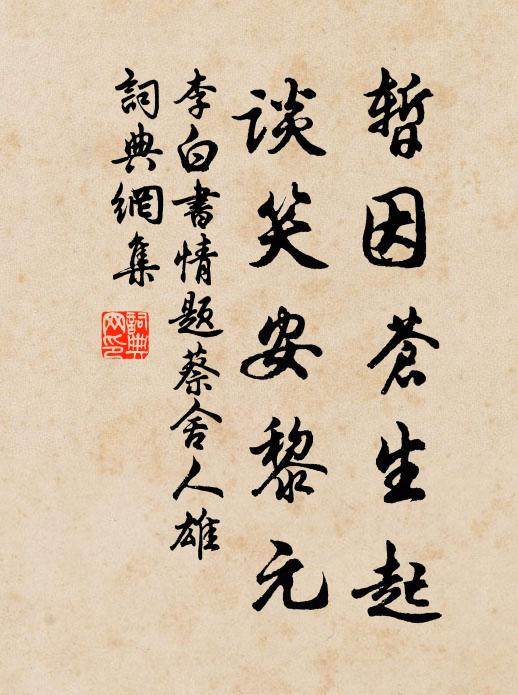 暫因蒼生起
談笑安黎元
李白書情題蔡舍人雄
詞典網集
詞典網印